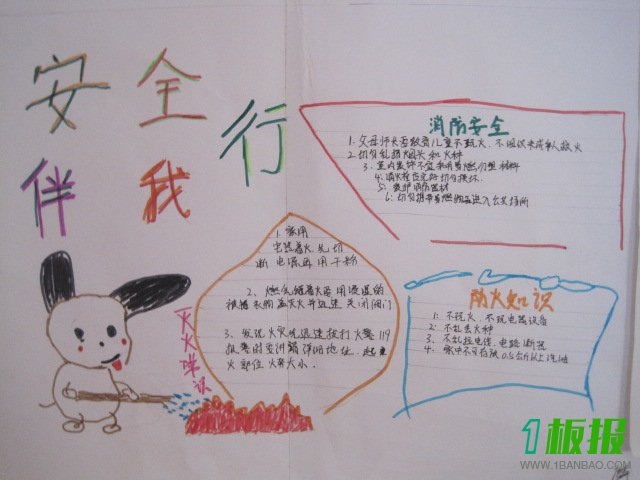 安全
伴我行
消防安全
1. 父母师长要教育儿童不玩火、不组织未成年人救火
2. 切勿乱扔烟头和火种
3. 室内装饰不宜采用易燃可塑材料
4. 消火栓
5. 爱护消防器材
6. 切勿携带易燃物品进入公共场所
1. 家用
电器着火, 先切
断电源再用干粉
2、燃气罐着火要用浸湿的
被褥衣物盖灭火并迅速关闭阀门
3、发现火灾迅速拨打火警119
报警时要讲清详细地址、起
火部位 火势大小.
灭火常识
防火知识
1. 不玩火、不玩电器设备
2. 不乱丢火种
3. 不乱接电线、电路
4. 家中不可存放0.5公斤以上汽油
1板报
WWW.1BANBAO.COM